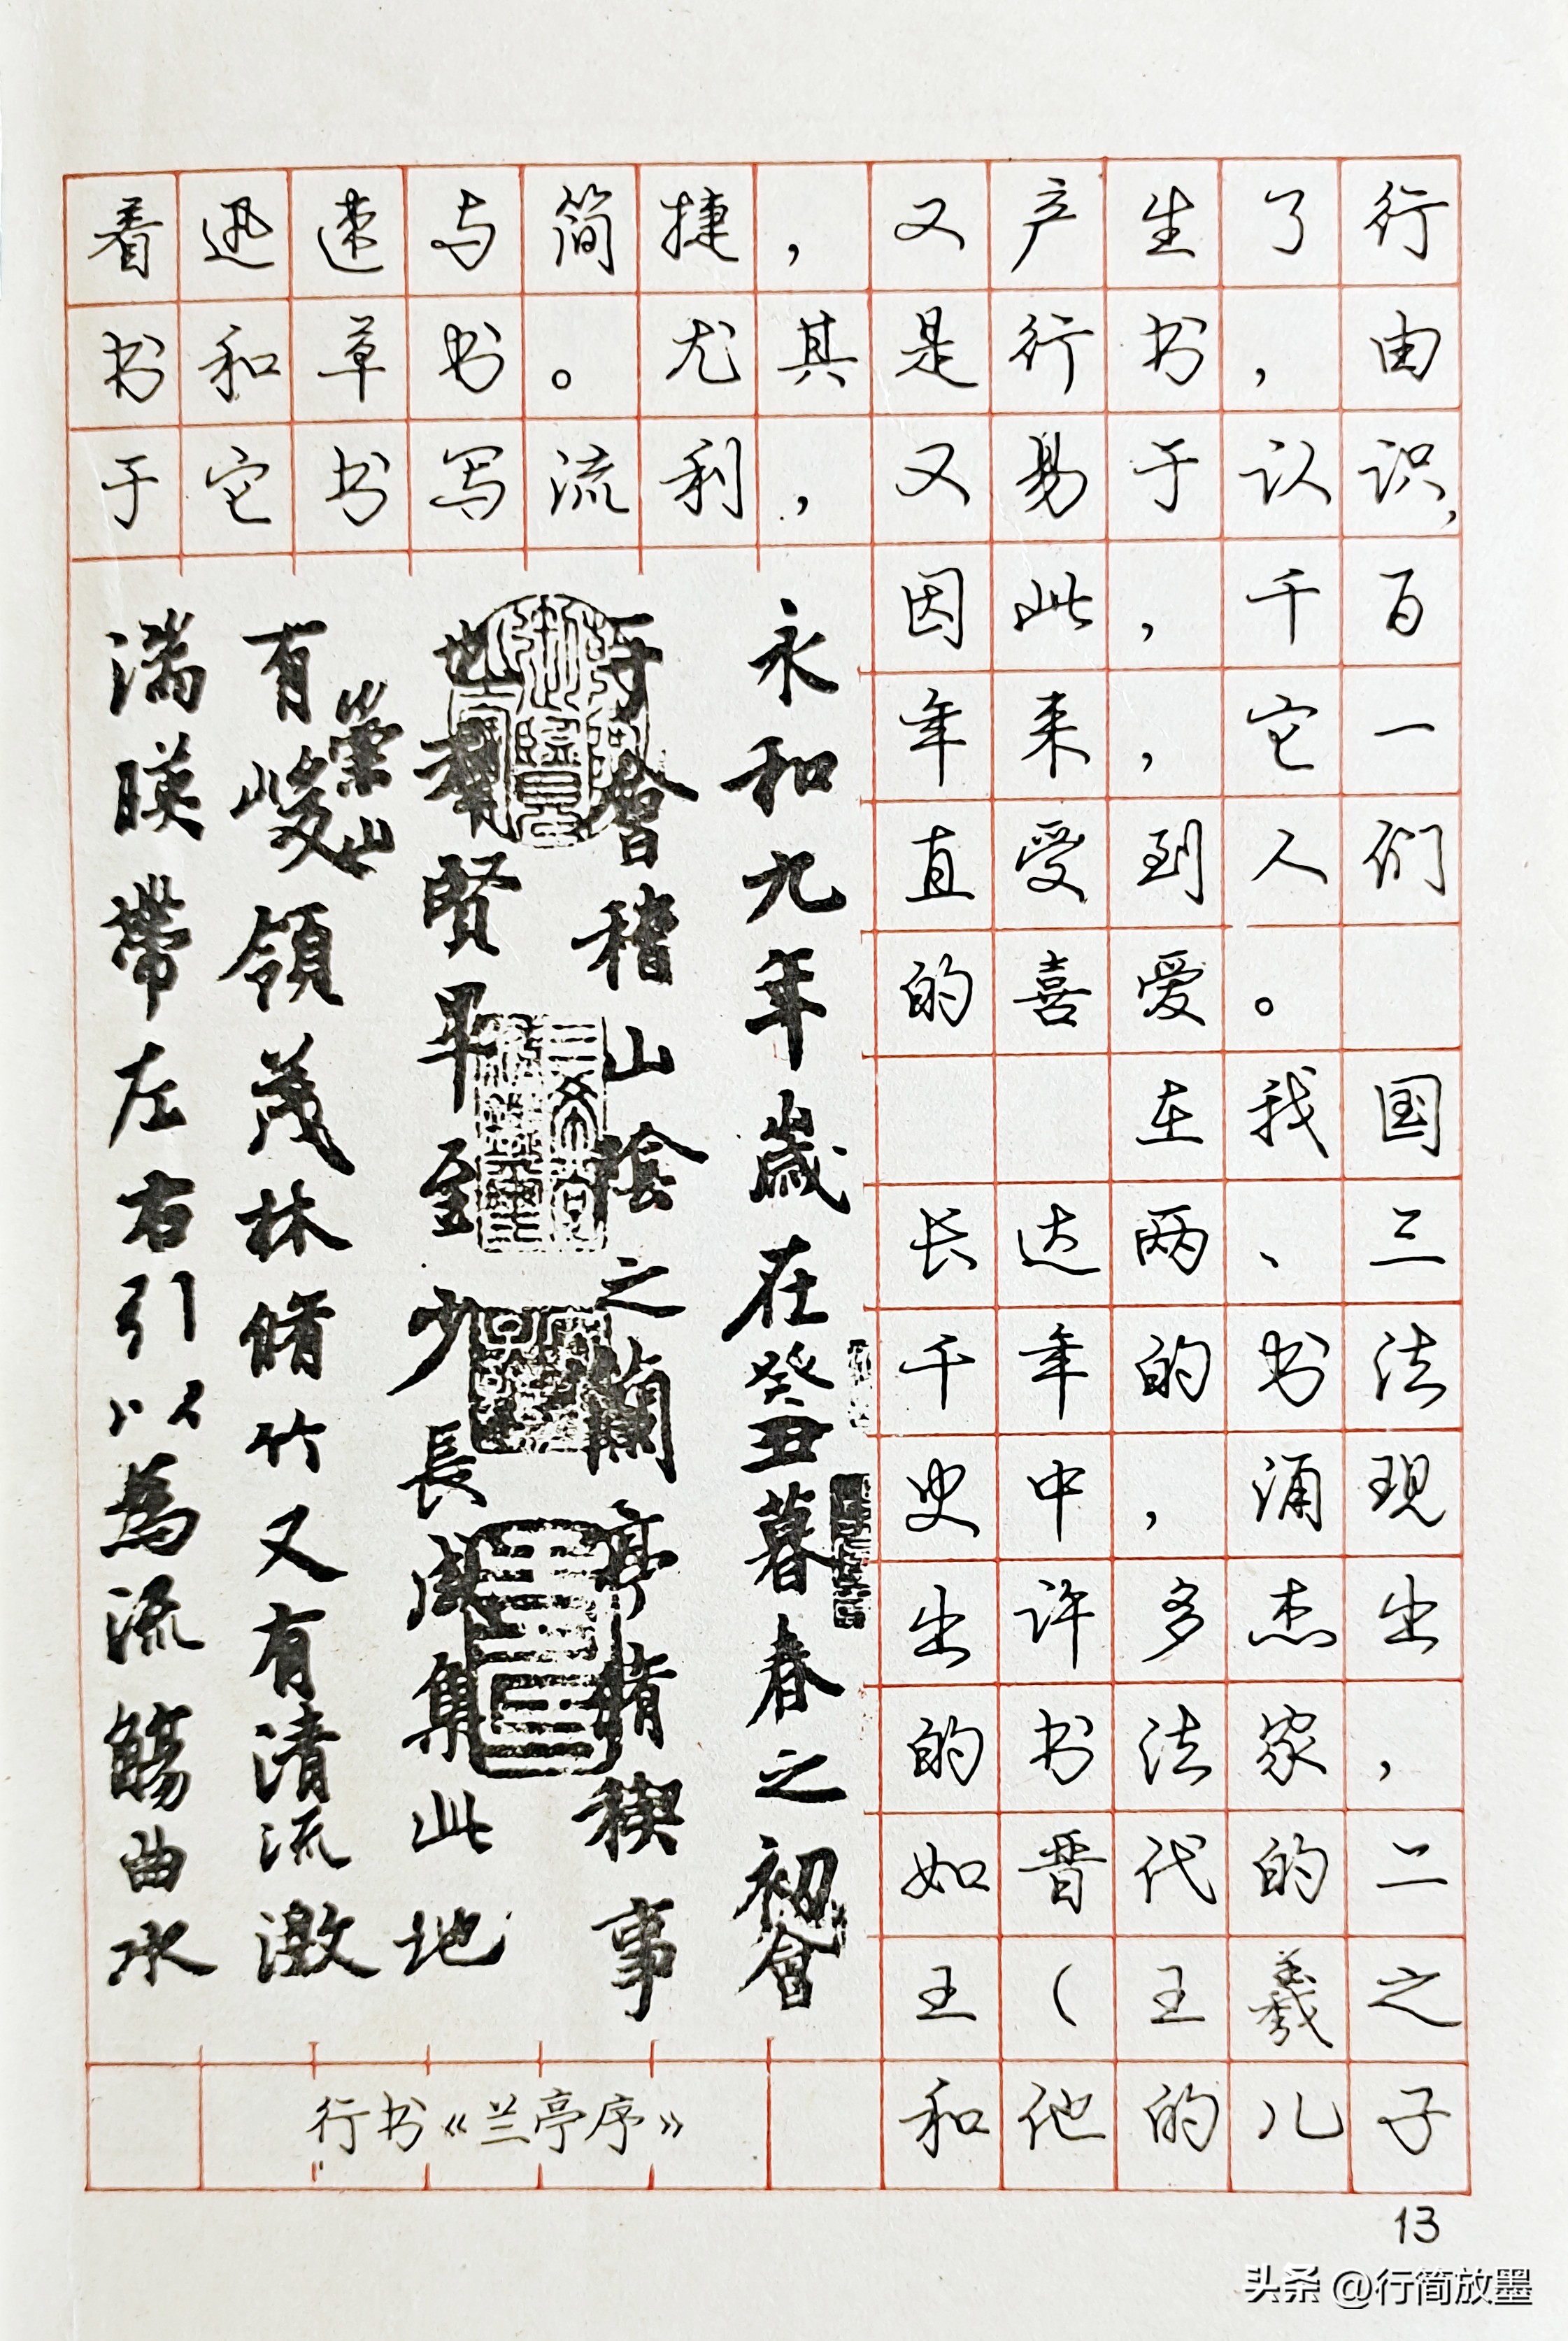 着迅速与简捷，又产生了行
书和草书。尤其是行书，由
于它书写流利，又易于认识，
因此，千百
年来，它一
直受到人们
的喜爱。
在我国
长达两、三
千年的书法
史中，涌现
出许多杰出
的书法家，
如晋代的二
王（王羲之
和他的儿子
永和九年歲在癸丑暮春之初會
于會稽山陰之蘭亭脩稧事
也羣賢畢至少長咸集此地
有崇山峻領茂林脩竹又有清流激
湍暎帶左右引以為流觴曲水
行书《兰亭序》
13
头条 @行简放墨